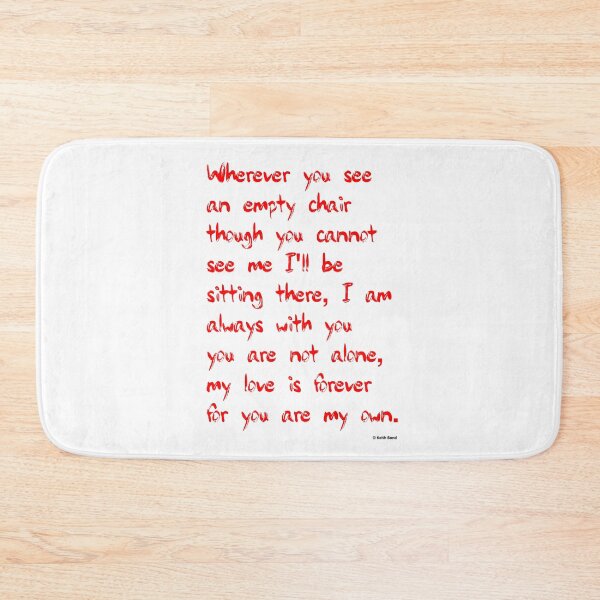 Wherever you see
an empty chair
though you cannot
see me I'll be
sitting there, I am
always with you
you are not alone,
my love is forever
for you are my own.